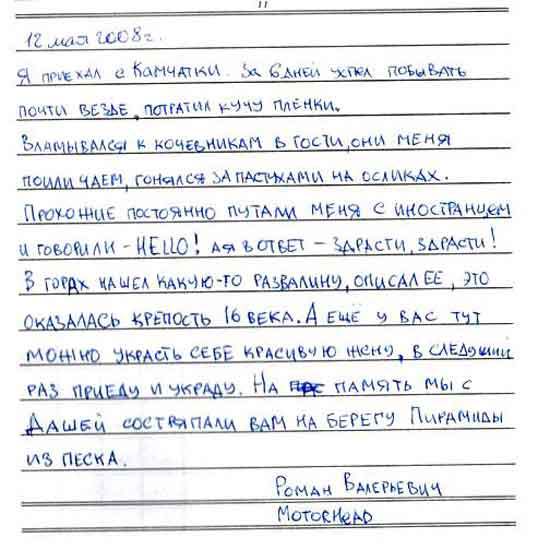 11
12 мая 2008г.
Я ПРИЕХАЛ С КАМЧАТКИ. ЗА 6 ДНЕЙ УСПЕЛ ПОБЫВАТЬ
ПОЧТИ ВЕЗДЕ, ПОТРАТИЛ КУЧУ ПЛЁНКИ.
ВЛАМЫВАЛСЯ К КОЧЕВНИКАМ В ГОСТИ, ОНИ МЕНЯ
ПОИЛИ ЧАЕМ, ГОНЯЛСЯ ЗА ПАСТУХАМИ НА ОСЛИКАХ.
ПРОХОЖИЕ ПОСТОЯННО ПУТАЛИ МЕНЯ С ИНОСТРАНЦЕМ
И ГОВОРИЛИ – HELLO! А Я В ОТВЕТ – ЗДРАСТИ, ЗДРАСТИ!
В ГОРАХ НАШЕЛ КАКУЮ-ТО РАЗВАЛИНУ, ОПИСАЛ ЕЕ, ЭТО
ОКАЗАЛАСЬ КРЕПОСТЬ 16 ВЕКА. А ЕЩЁ У ВАС ТУТ
МОЖНО УКРАСТЬ СЕБЕ КРАСИВУЮ ЖЕНУ, В СЛЕДУЩИЙ
РАЗ ПРИЕДУ И УКРАДУ. НА ПАМЯТЬ МЫ С
ДАШЕЙ СОСТРЯПАЛИ ВАМ НА БЕРЕГУ ПИРАМИДЫ
ИЗ ПЕСКА.
РОМАН ВАЛЕРЬЕВИЧ
MOTORHEAD